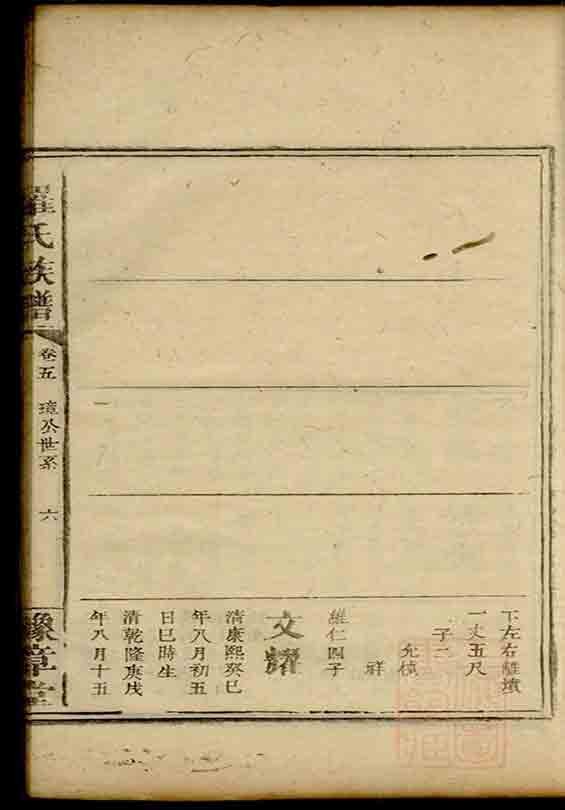 下左右離墳
一丈五尺
子二
允楨
祥
維仁四子
文耀
清康熙癸巳
年八月初五
日巳時生
清乾隆庚戌
年八月十五
羅氏族譜
卷五 璋公世系 六
豫章堂